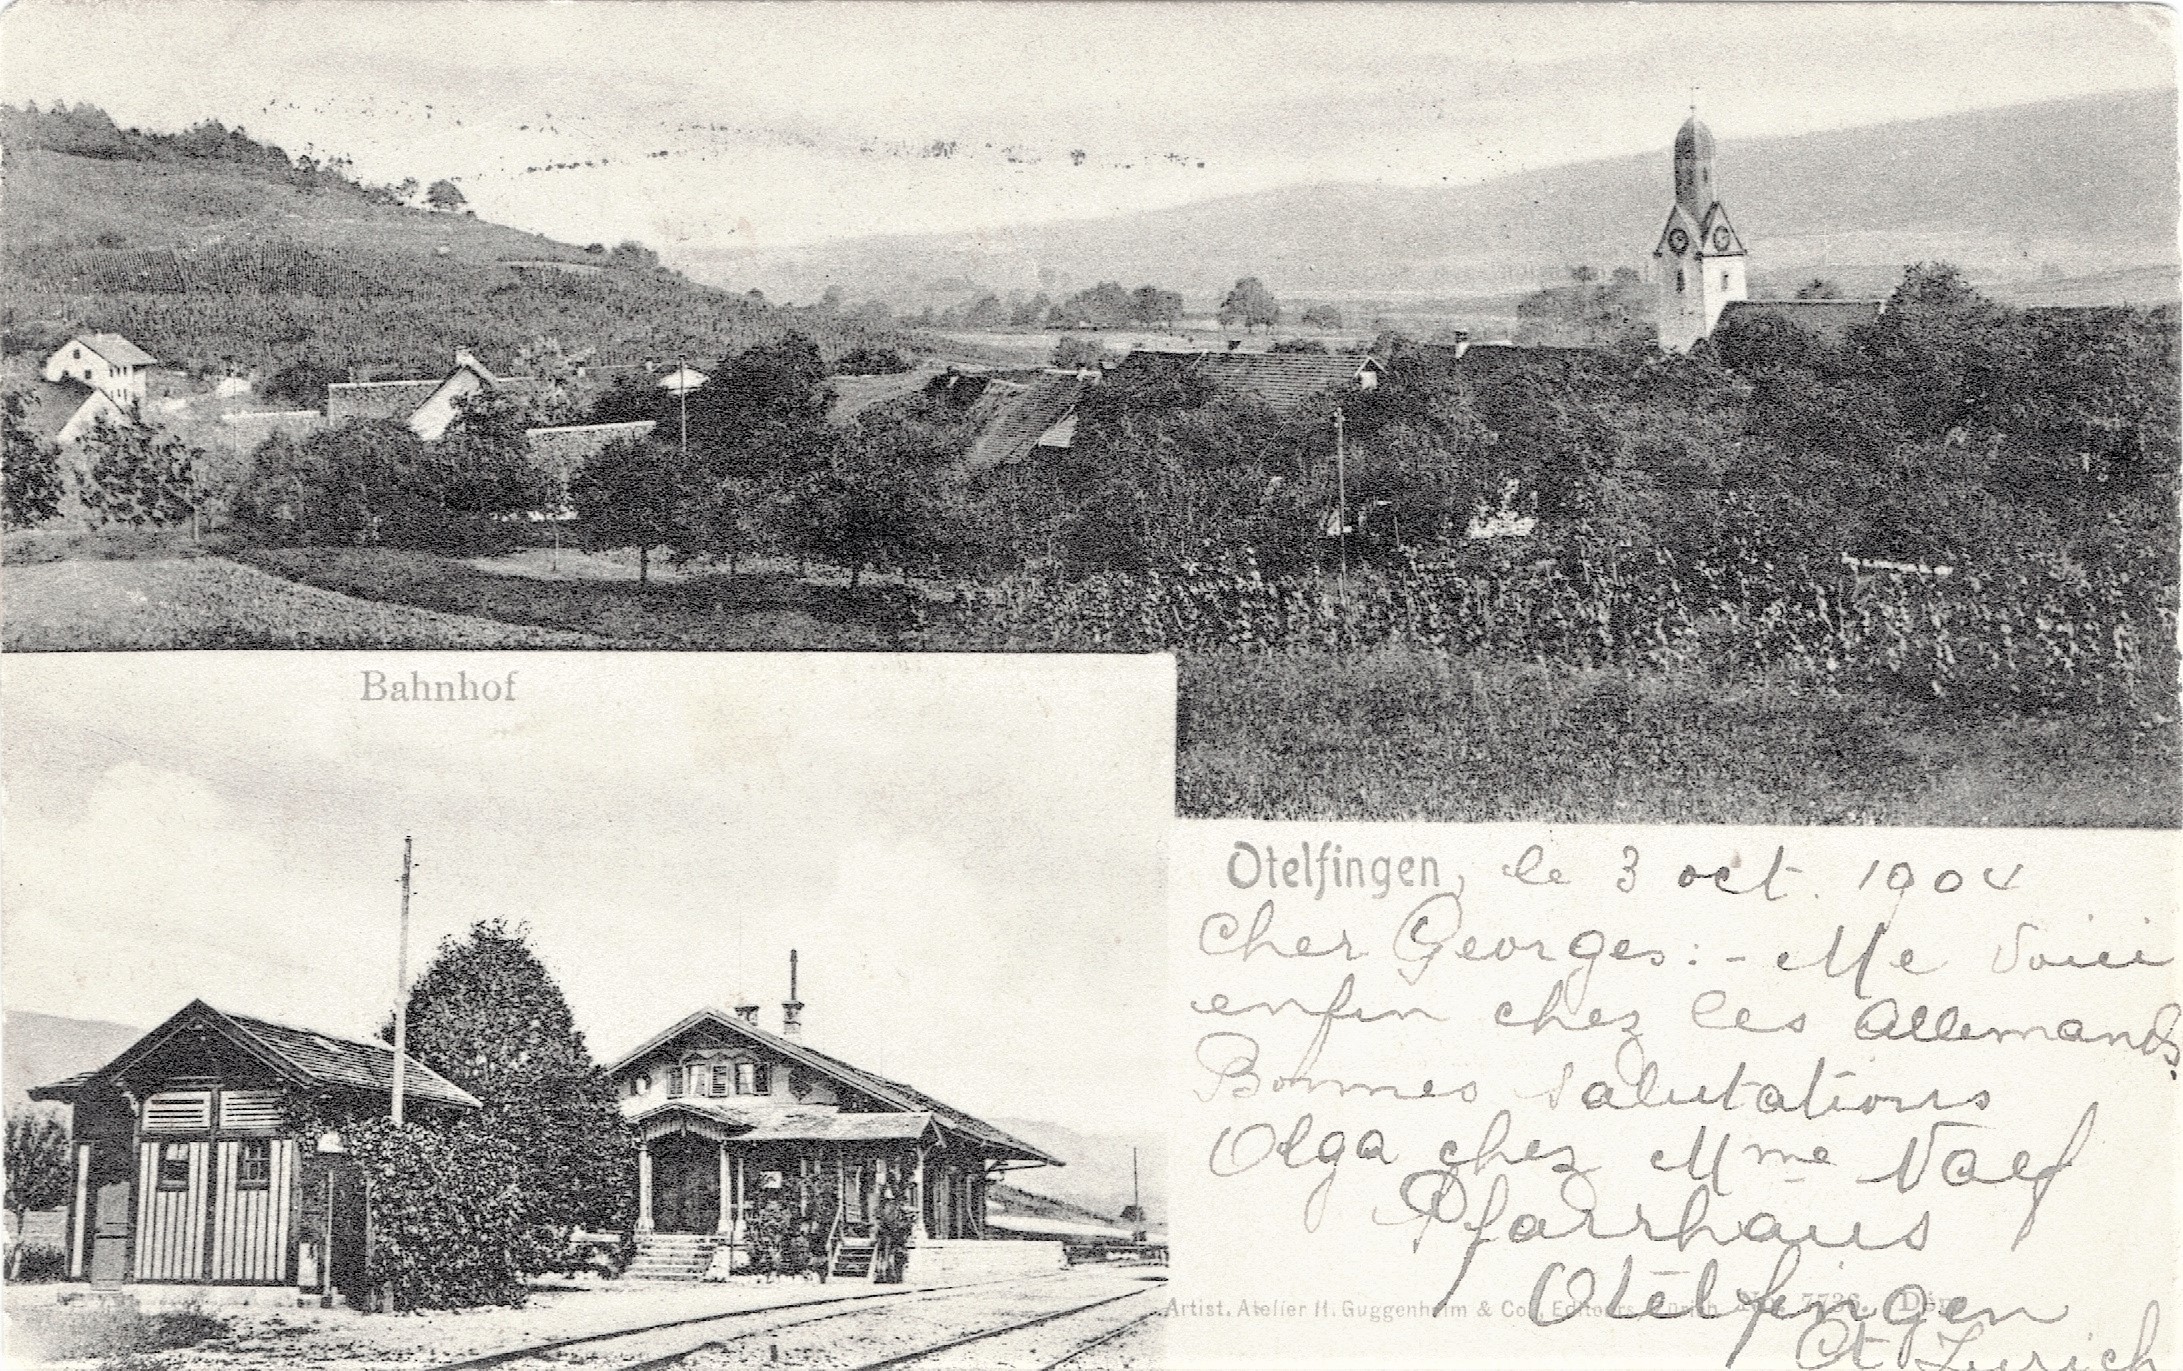 Bahnhof
Otelfingen, le 3 oct. 1904
Cher Georges: - Me voici
enfin chez les Allemands.
Bonnes salutations
Olga chez Mme Naef
Pfarrhaus
Otelfingen
Ct. Zurich
Artist. Atelier H. Guggenheim & Co., Editeurs, Zürich. No. 7736.